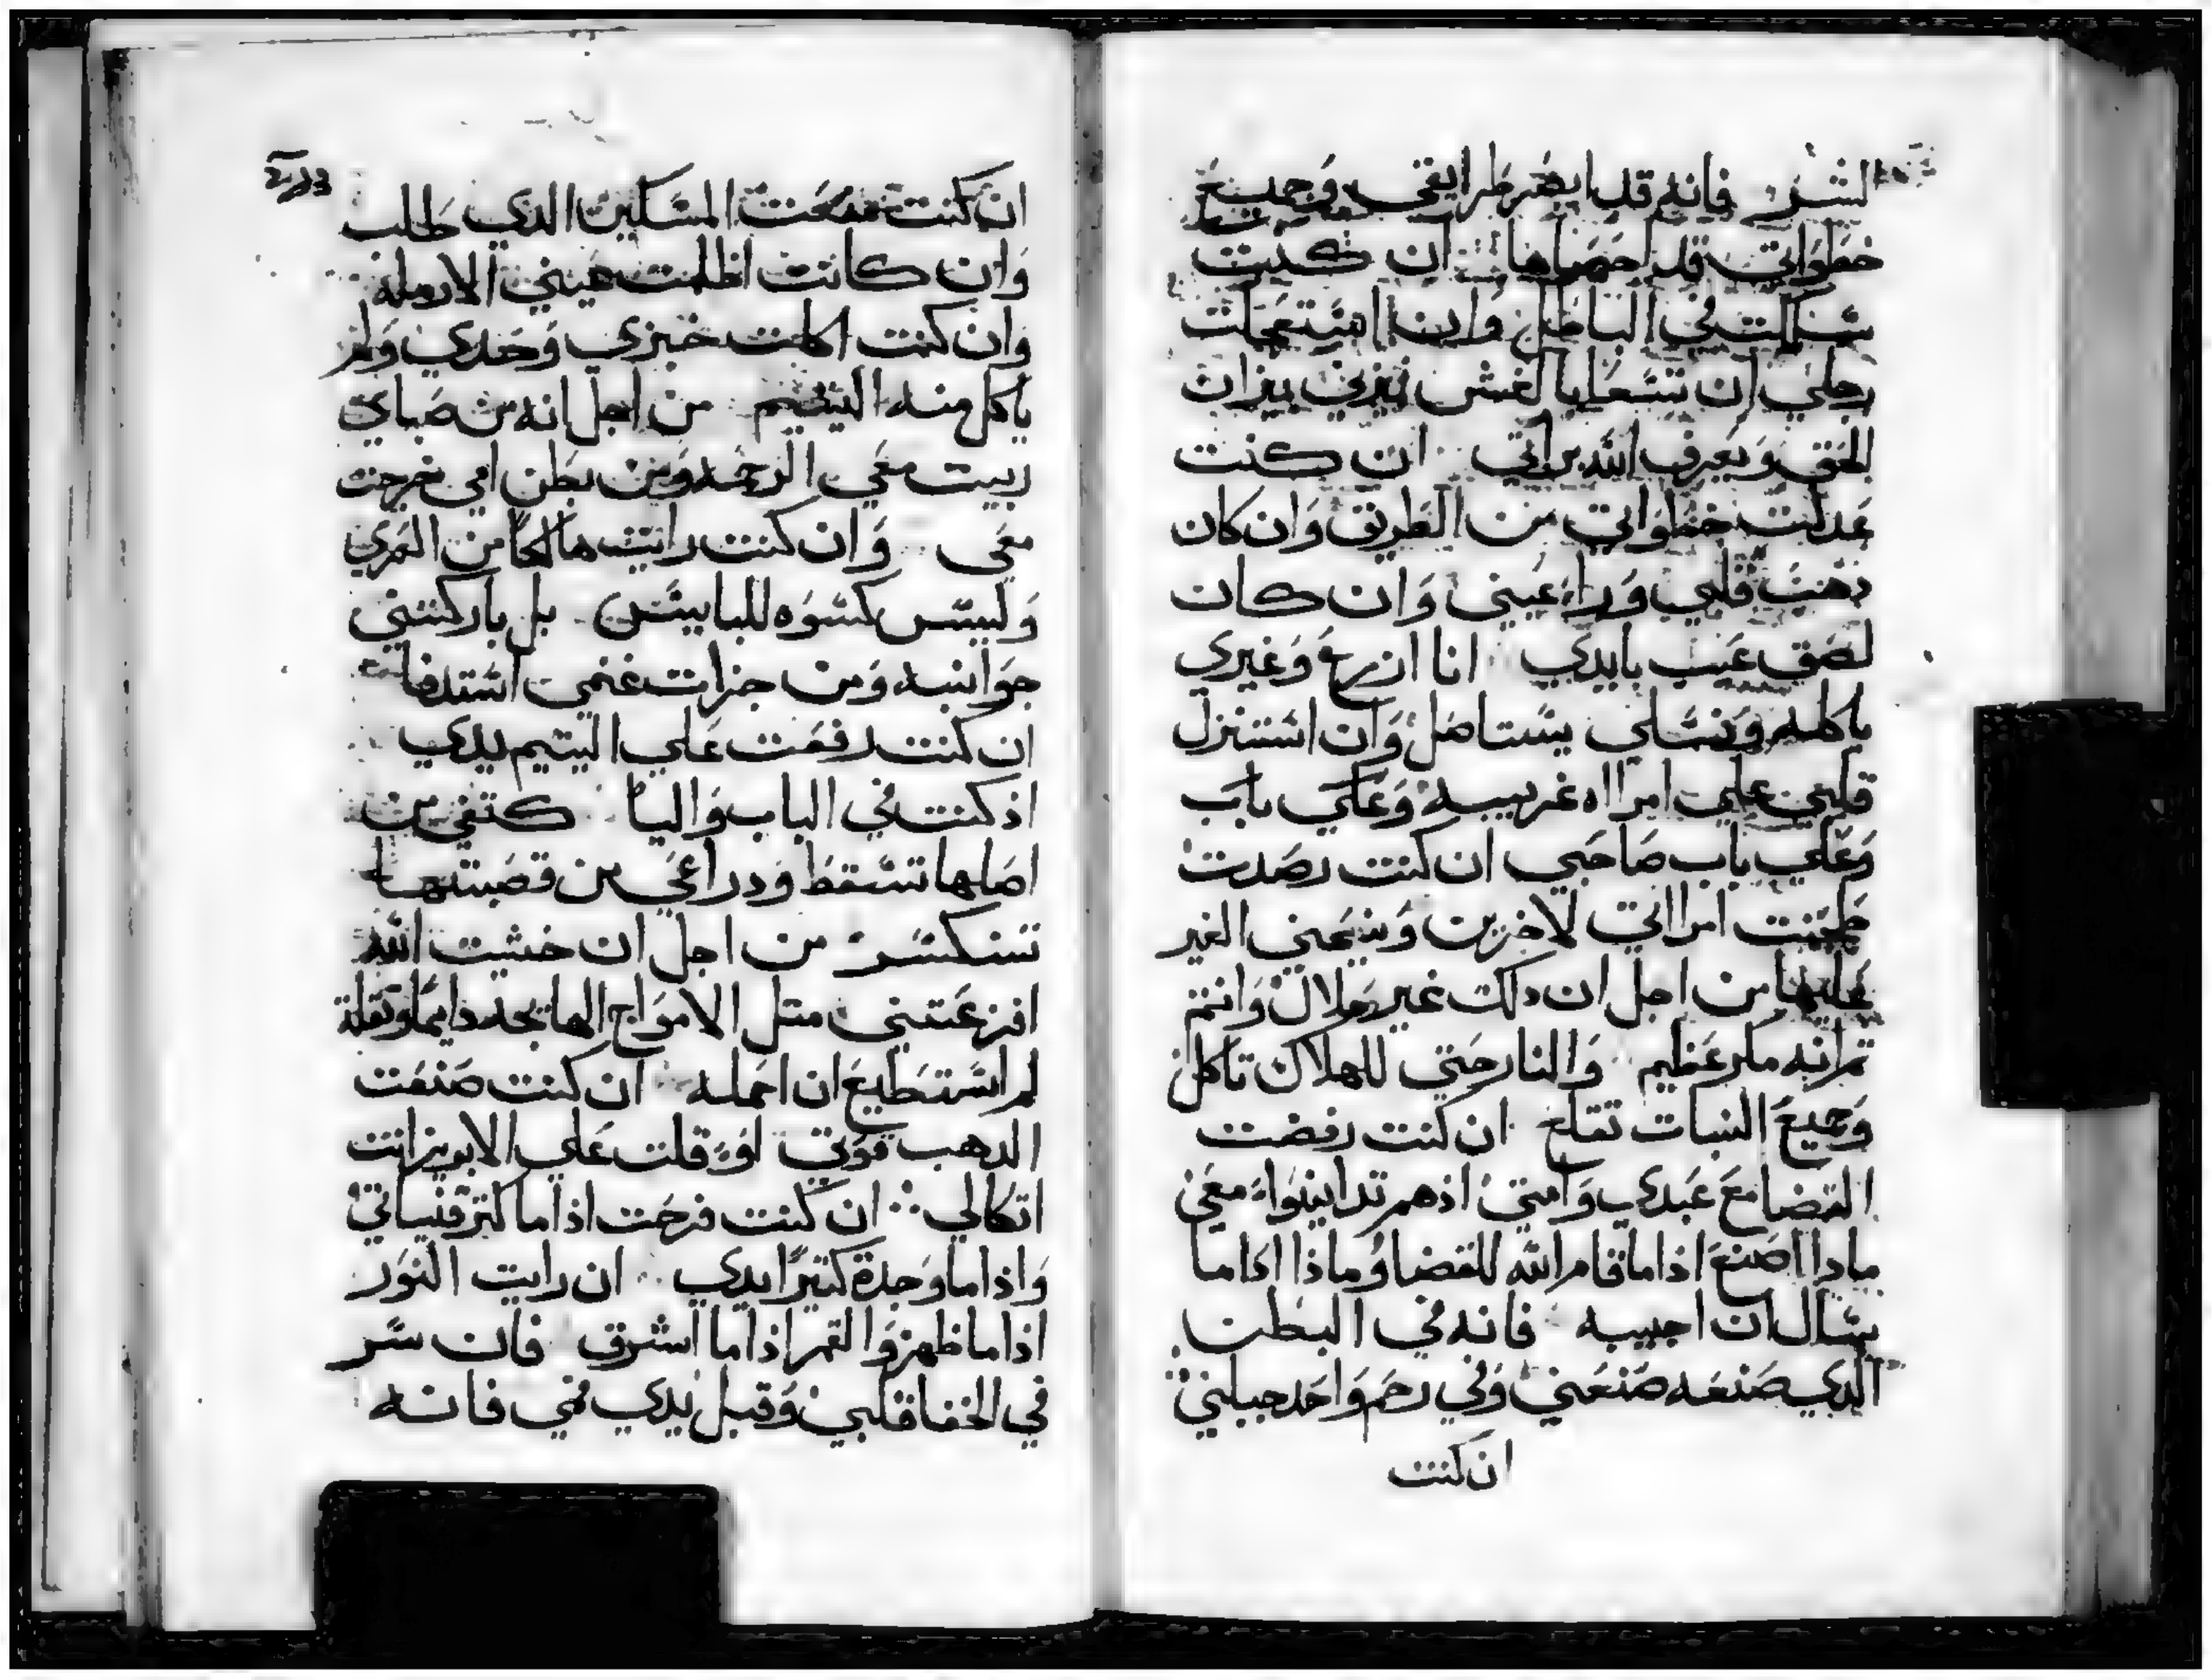 الشر فانه قد ابصر طرايقي وجميع
خطواتي قد احصاها ان كنت
سلكت في الباطل وان استعجلت
رجلي ان تسعا بالغش يزني بميزان
الحق ويعرف الله براتي ان كنت
عدلت خطواتي من الطريق وان كان
دهب قلبي وراء عيني وان كان
لصق عيب بايدي انا ازرع وغيري
ياكله ونسلي يستاصل وان استنزل
قلبي علي امراه غريبه وعلي باب
وعلي باب صاحبي ان كنت رصدت
طحنت امراتي لاخرين وينحني الغير
عليها من اجل ان دلك غير حلال وانتم
ترانه مكر عظيم والنار حتي للهلاك تاكل
وجميع النبات تقلع ان كنت رفضت
القضا مع عبدي وامتي اذهم تداينوا معي
مادا اصنع اذا ما قام الله للقضا وماذا اذا ما
يسال ان اجيبه فانه في البطن
الدي صنعه صنعني وفي رحم واحد جبلني
ان كنت
ان كنت منعت المسكين الدي طلب
وان كانت اظلمت عيني الارمله
وان كنت اكلت خبزي وحدي ولم
ياكل منه اليتيم من اجل انه من صباي
ربيت معي الرحمه ومن بطن امي خرجت
معي وان كنت رايت هالكا من العري
وليس كسوه للبايس بل باركتني
جوانبه ومن جزات غنمي استدفا
ان كنت رفعت علي اليتيم يدي
اذ كنت في الباب واليا كتفي من
اصلها تسقط ودراعي من قصبتها
تنكسر من اجل ان خشيت الله
افزعتني متل الامواج الهايجه دايما وتقله
لم استطيع ان احمله ان كنت صنعت
الدهب قوتي او قلت علي الابريز انت
اتكالي ان كنت فرحت اذا ما كتر قنياتي
واذا ما وجدة كتيرا يدي ان رايت النور
اذا ما ظهر والقمر اذا ما اشرق فان سر
في الخفا قلبي وقبل يدي فمي فانه